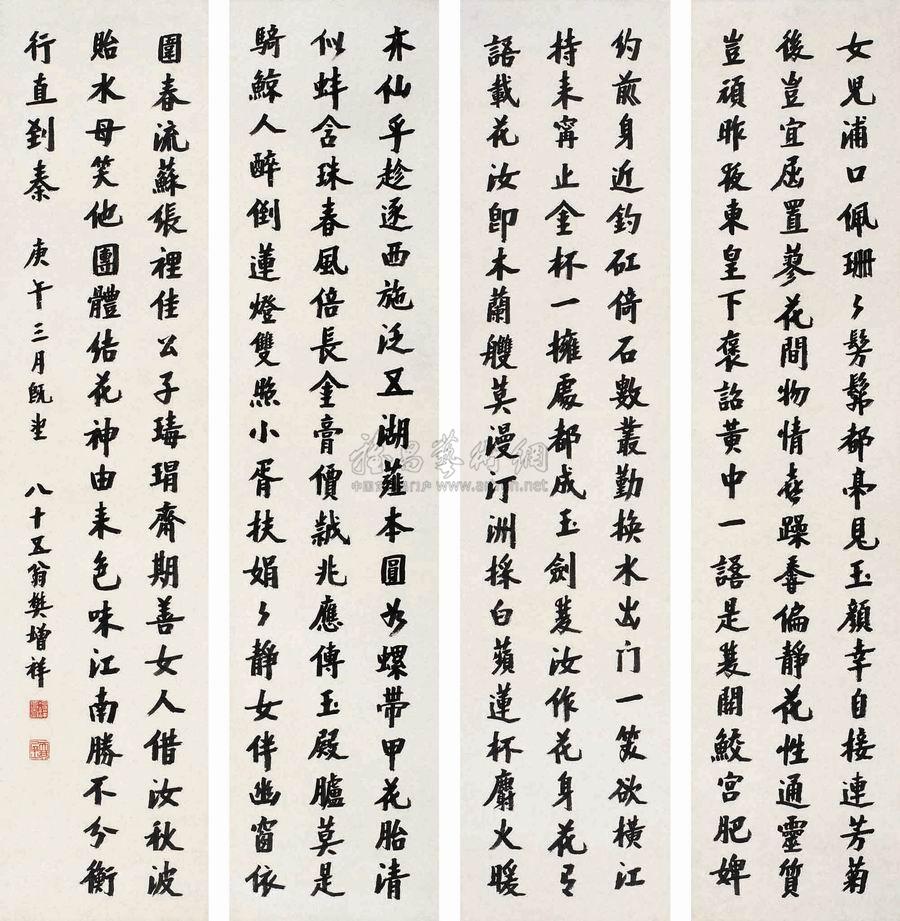 女兒浦口佩珊々髣髴都亭見玉顏幸自接連芳菊
後豈宜屈置蓼花間物情喜躁蓁偏靜花性通靈質
豈頑昨夜東皇下褒詔黃中一語是蓁關鮫宮肥婢
約前身近釣矼倚石數叢勤換水出门一笑欲橫江
持來甯止金杯一擁處都成玉劍蓁汝作花身花弓
語載花汝即木蘭艭莫漫汀洲採白蘋蓮杯麝火暖
亦仙乎趁逐西施泛五湖蓮本圓如螺帶甲花胎清
似蚌含珠春風倍長金膏價黻兆應傳玉殿臚莫是
騎鯨人醉倒蓮燈雙照小胥扶娟々靜女伴幽窗依
圍春流蘇張裡佳公子瑇瑁齋期善女人借汝秋波
貽水母笑他團體結花神由來色味江南勝不分衡
行直到秦
庚午三月既望
八十五翁樊增祥